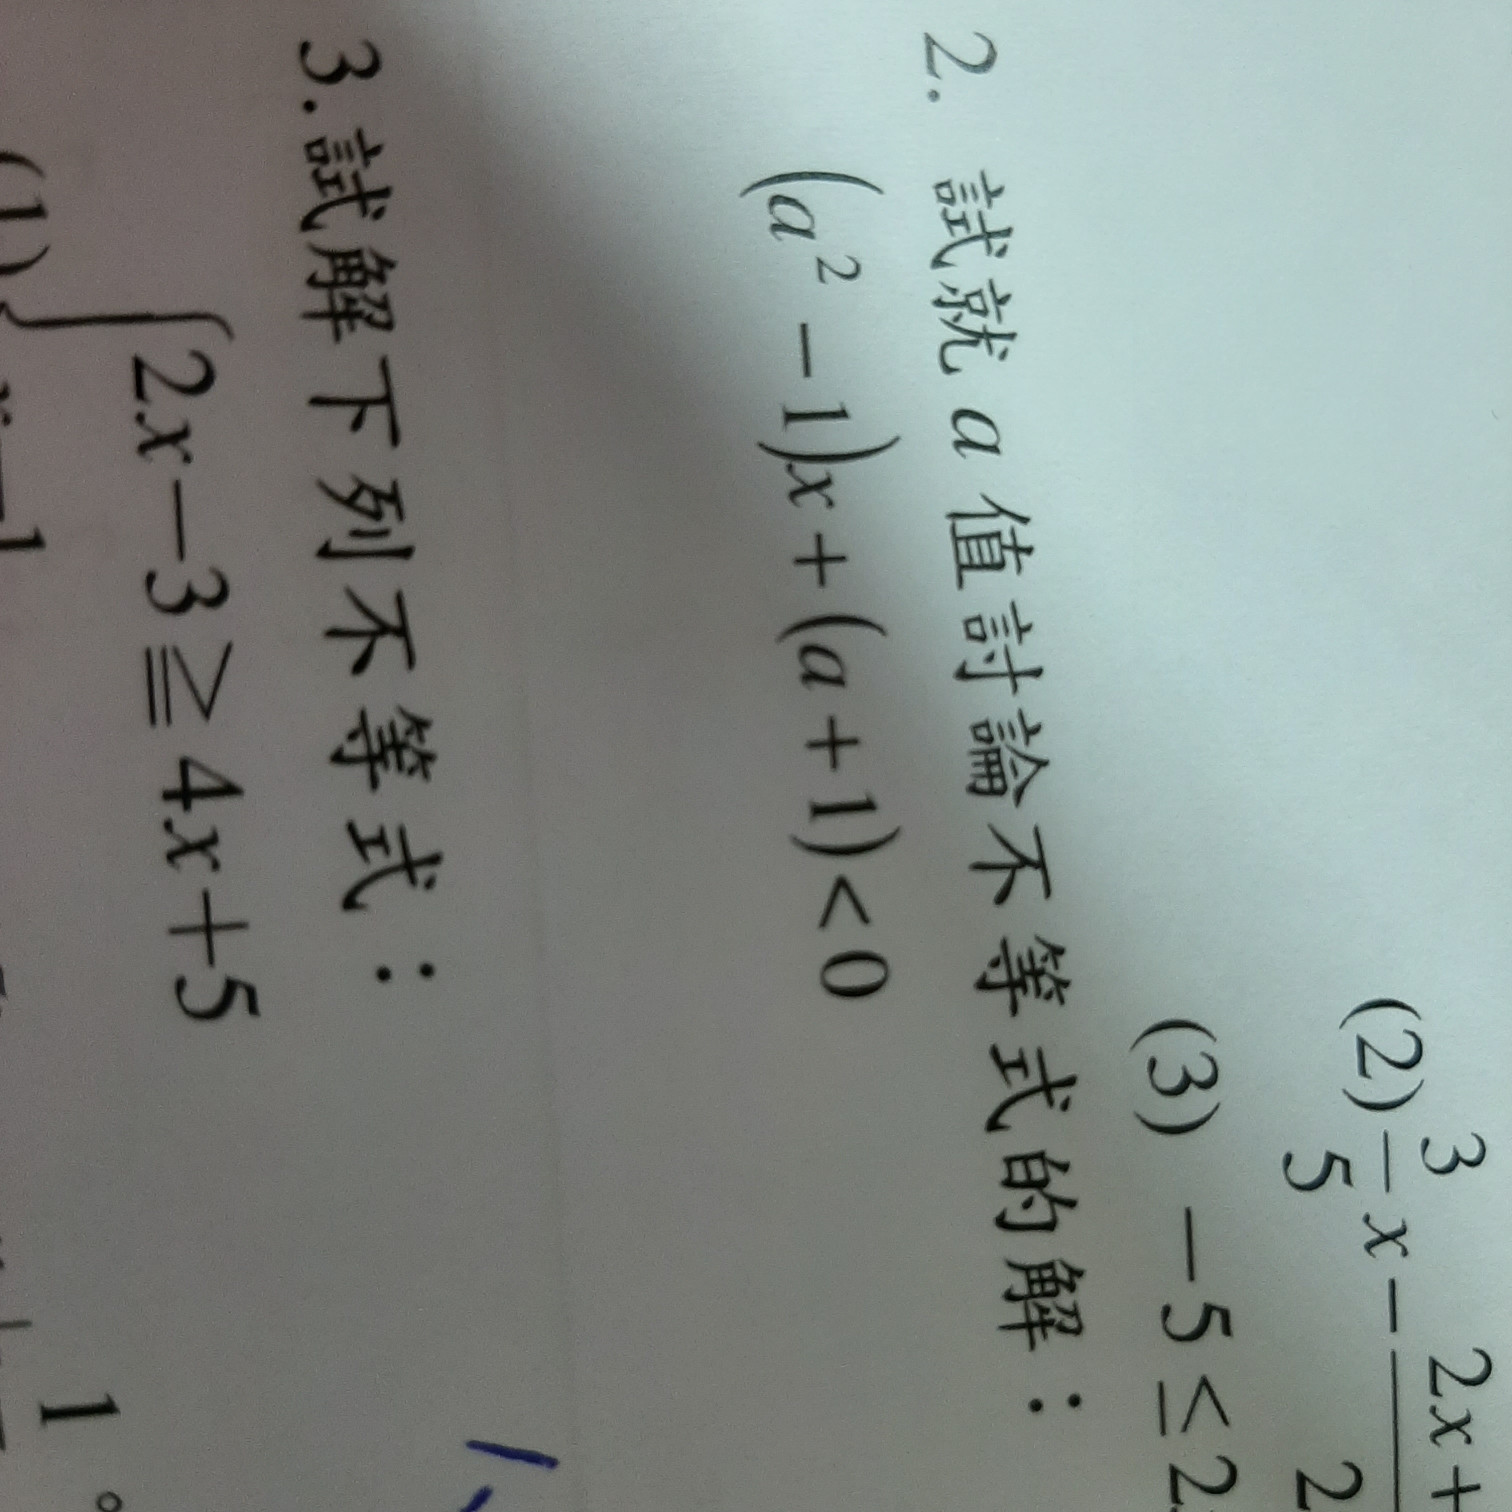 (2) 3/5 x - 2x+ / 2
(3) -5 ≤ 2
2. 試就 a 值討論不等式的解：
(a² - 1)x + (a + 1) < 0
3. 試解下列不等式：
(1) { 2x - 3 ≧ 4x + 5
1。